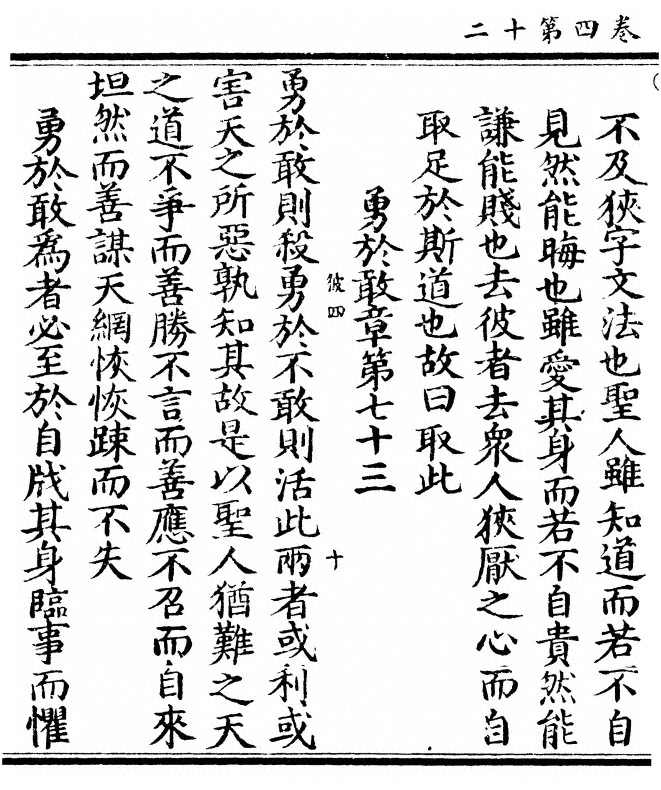 卷四第十二
不及狹字文法也聖人雖知道而若不自
見然能晦也雖愛其身而若不自貴然能
謙能賤也去彼者去衆人狹厭之心而自
取足於斯道也故曰取此
勇於敢章第七十三
彼四
十
勇於敢則殺勇於不敢則活此兩者或利或
害天之所惡孰知其故是以聖人猶難之天
之道不爭而善勝不言而善應不召而自來
坦然而善謀天網恢恢踈而不失
勇於敢爲者必至於自戕其身臨事而懼